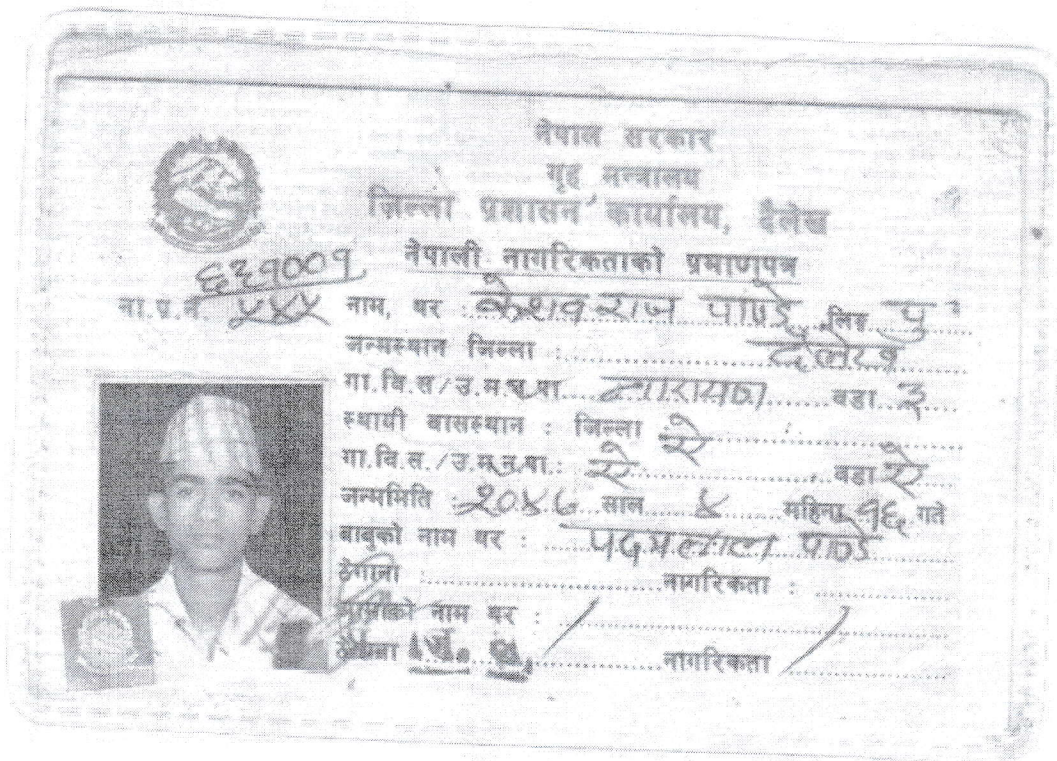 नेपाल सरकार
गृह मन्त्रालय
जिल्ला प्रशासन कार्यालय, दैलेख
नेपाली नागरिकताको प्रमाणपत्र
६३१००१
ना.प्र.नं. ५४५ नाम, थर : केशव राज पाण्डे लिङ्ग पु
जन्मस्थान जिल्ला : दैलेख
गा.वि.स/उ.म.न.पा. वडा ३
स्थायी बासस्थान : जिल्ला ऐ
गा.वि.स./उ.म.न.पा.: ऐ वडा ऐ
जन्ममिति २०४७ साल ४ महिना १६ गते
बाबुको नाम थर : पदमलाल पाण्डे
ठेगाना : नागरिकता :
आमाको नाम थर :
ठेगाना नागरिकता